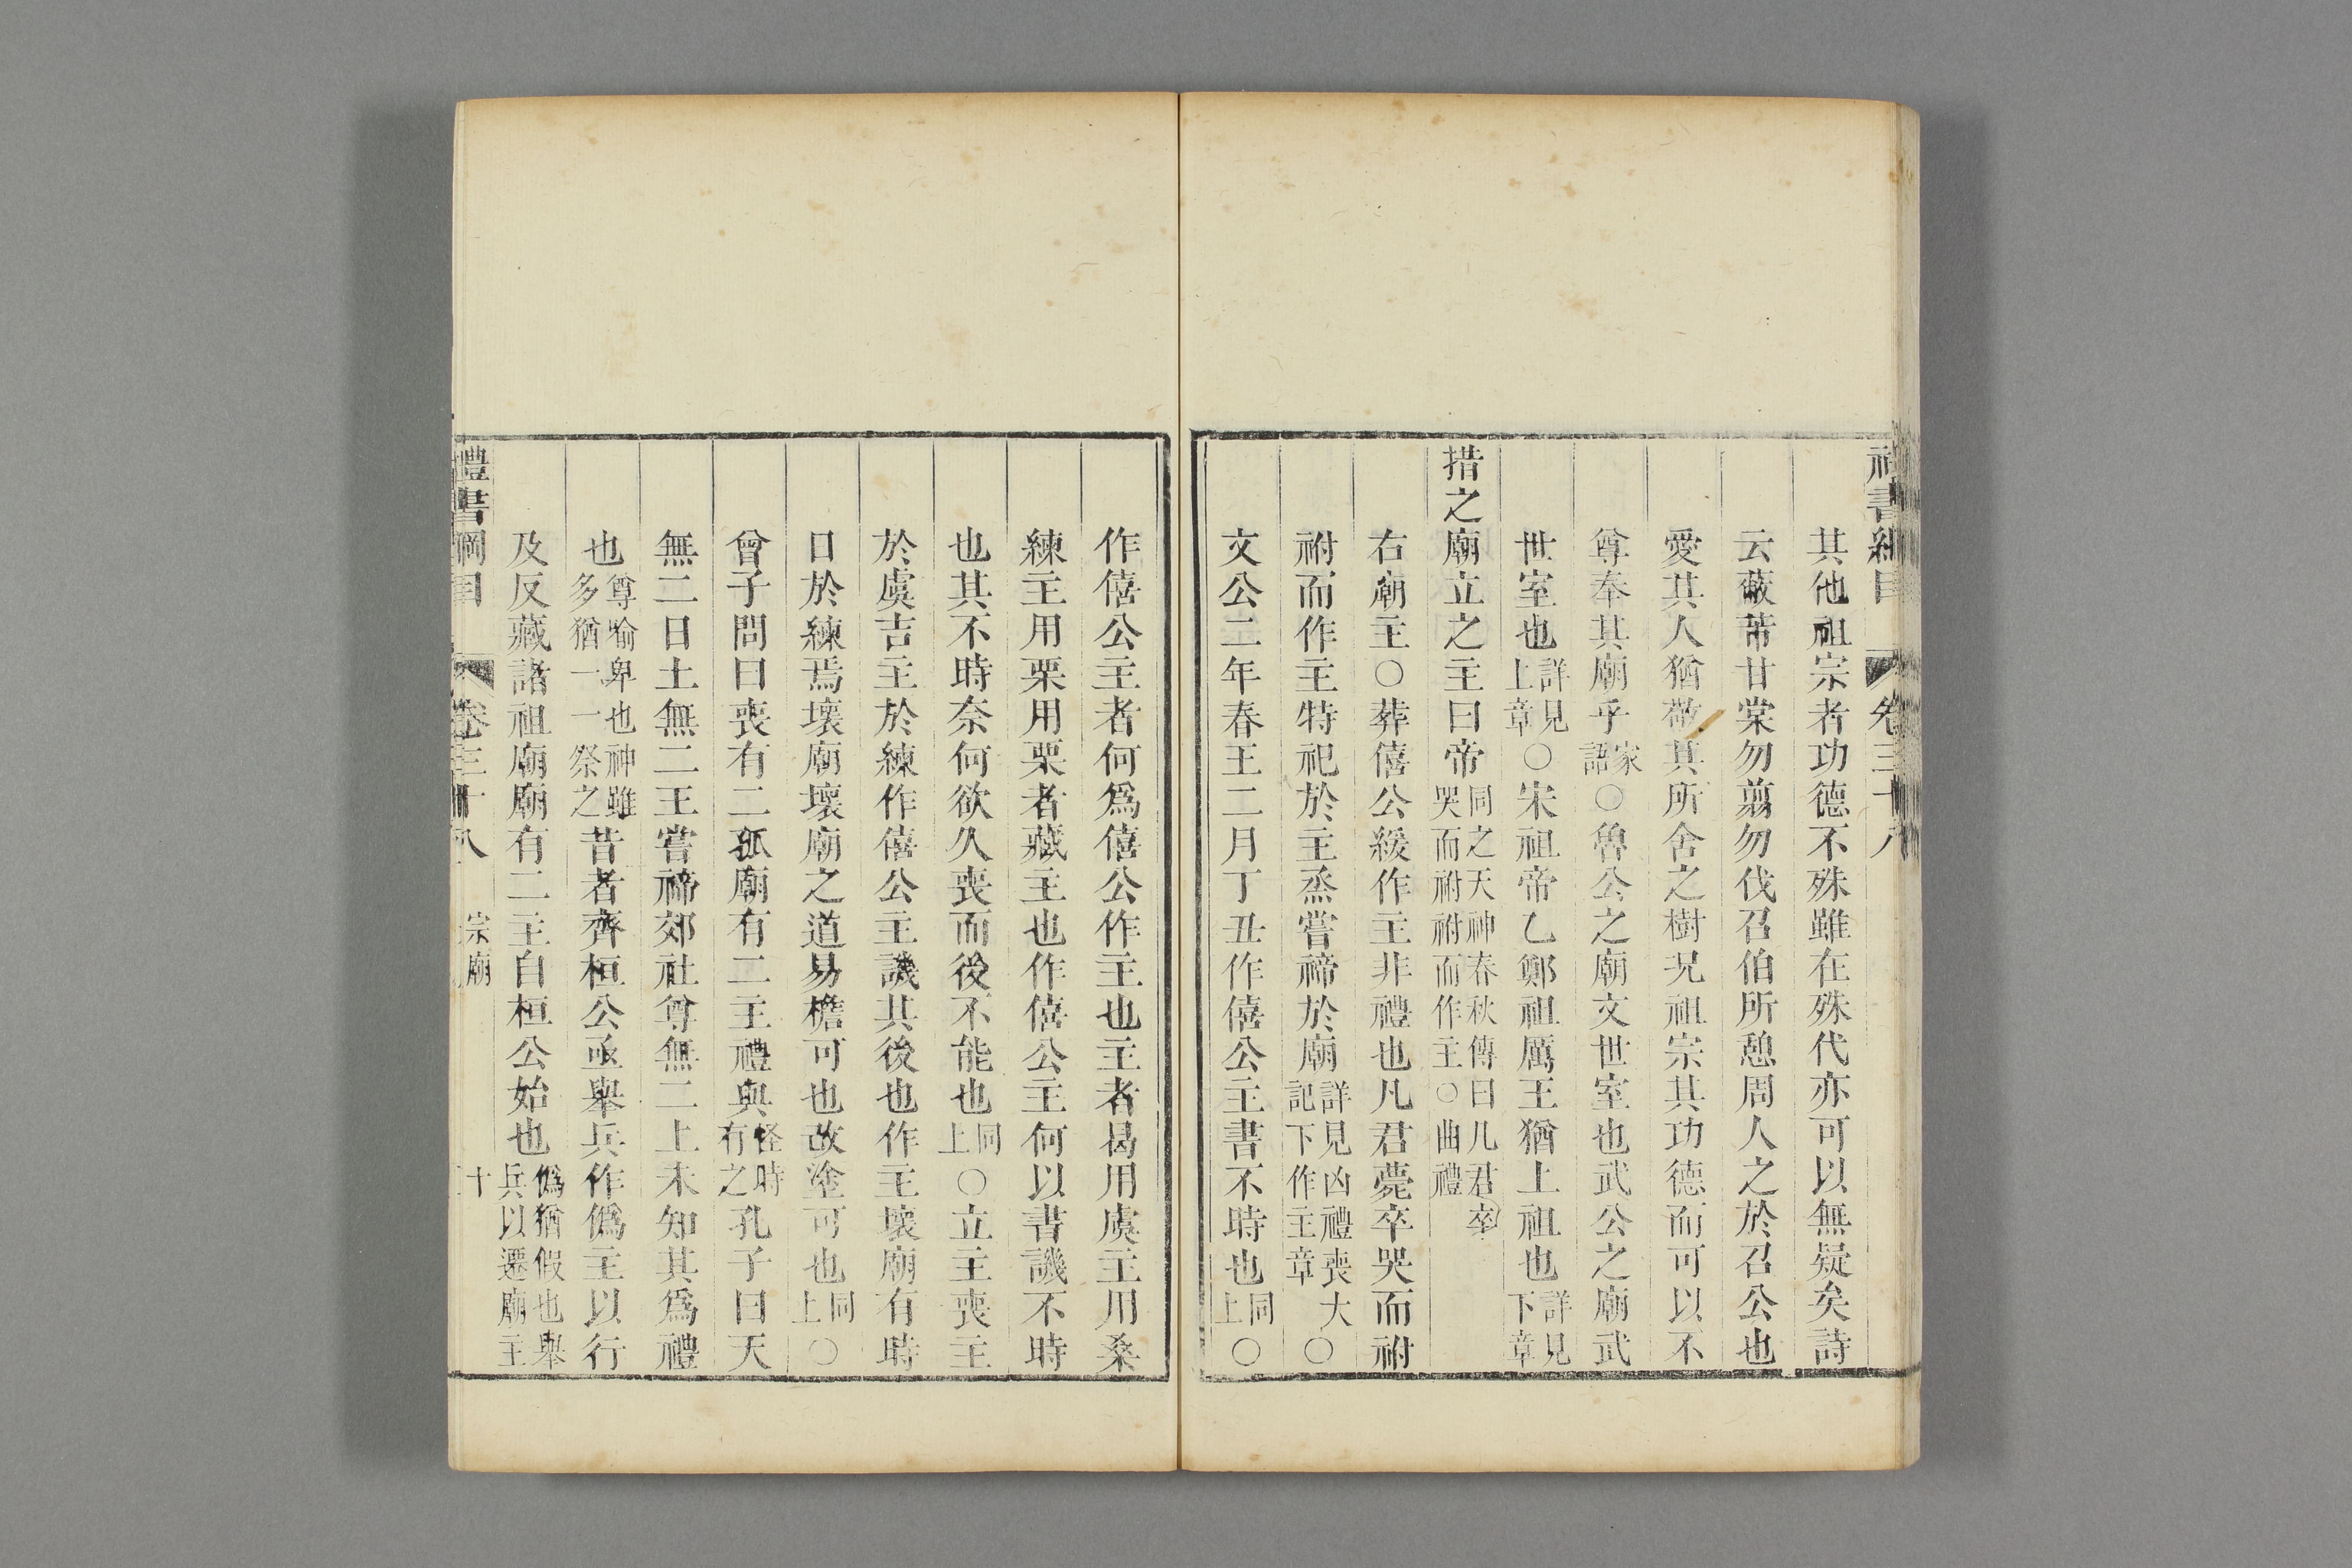 禮書綱目 卷三十八
其他祖宗者功德不殊雖在殊代亦可以無疑矣詩
云蔽芾甘棠勿翦勿伐召伯所憩周人之於召公也
愛其人猶敬其所舍之樹況祖宗其功德而可以不
尊奉其廟乎家語○魯公之廟文世室也武公之廟武
世室也詳見上章○宋祖帝乙鄭祖厲王猶上祖也詳見下章
措之廟立之主曰帝同之天神春秋傳曰凡君卒哭而祔祔而作主○曲禮
右廟主○葬僖公緩作主非禮也凡君薨卒哭而祔
祔而作主特祀於主烝嘗禘於廟詳見凶禮喪大記下作主章○
文公二年春王二月丁丑作僖公主書不時也同上○
作僖公主者何爲僖公作主也主者曷用虞主用桑
練主用栗用栗者藏主也作僖公主何以書譏不時
也其不時奈何欲久喪而後不能也同上○立主喪主
於虞吉主於練作僖公主譏其後也作主壞廟有時
日於練焉壞廟壞廟之道易檐可也改塗可也同上○
曾子問曰喪有二孤廟有二主禮與怪時有之孔子曰天
無二日土無二王嘗禘郊社尊無二上未知其爲禮
也尊喻卑也神雖多猶一一祭之昔者齊桓公亟舉兵作僞主以行
及反藏諸祖廟廟有二主自桓公始也僞猶假也舉兵以遷廟主
禮書綱目 卷三十八 宗廟 十